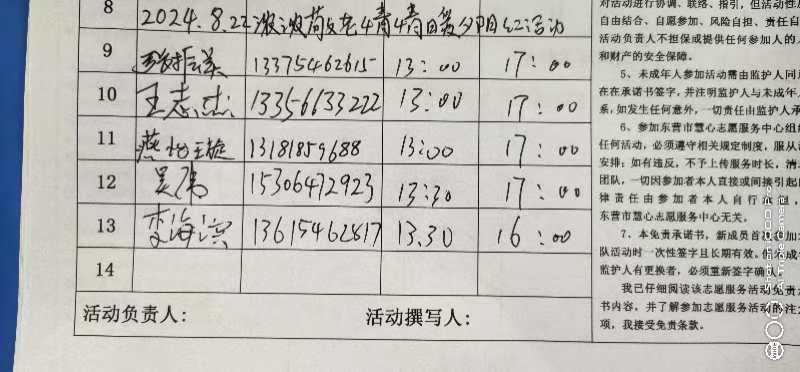 8 2024.8.22
9 13375462615 13:00 17:00
10 王志杰 13356633222 13:00 17:00
11 13181859688 13:00 17:00
12 吴伟 15306472923 13:30 17:00
13 李海滨 13615462817 13.30 16:00
14
活动负责人: 活动撰写人:
对活动进行协调、联络、指引,但活动性
自由结合、自愿参加、风险自担、责任自
活动负责人不担保或提供任何参加人的人
和财产的安全保障。
5、未成年人参加活动需由监护人同
在在承诺书签字,并注明监护人与未成年人
系,如发生任何意外,一切责任由监护人承
6、参加东营市慧心志愿服务中心组
任何活动,必须遵守相关规定制度,服从
安排;如有违反,不予上传服务时长,清
团队,一切因参加者本人直接或间接引起
律责任由参加者本人自行承担,
东营市慧心志愿服务中心无关。
7、本免责承诺书,新成员首次参加
队活动时一次性签字且长期有效。
监护人有更换者,必须重新签字确认。
我已仔细阅读该志愿服务活动免责
书内容,并了解参加志愿服务活动的注
项,我接受免责条款。